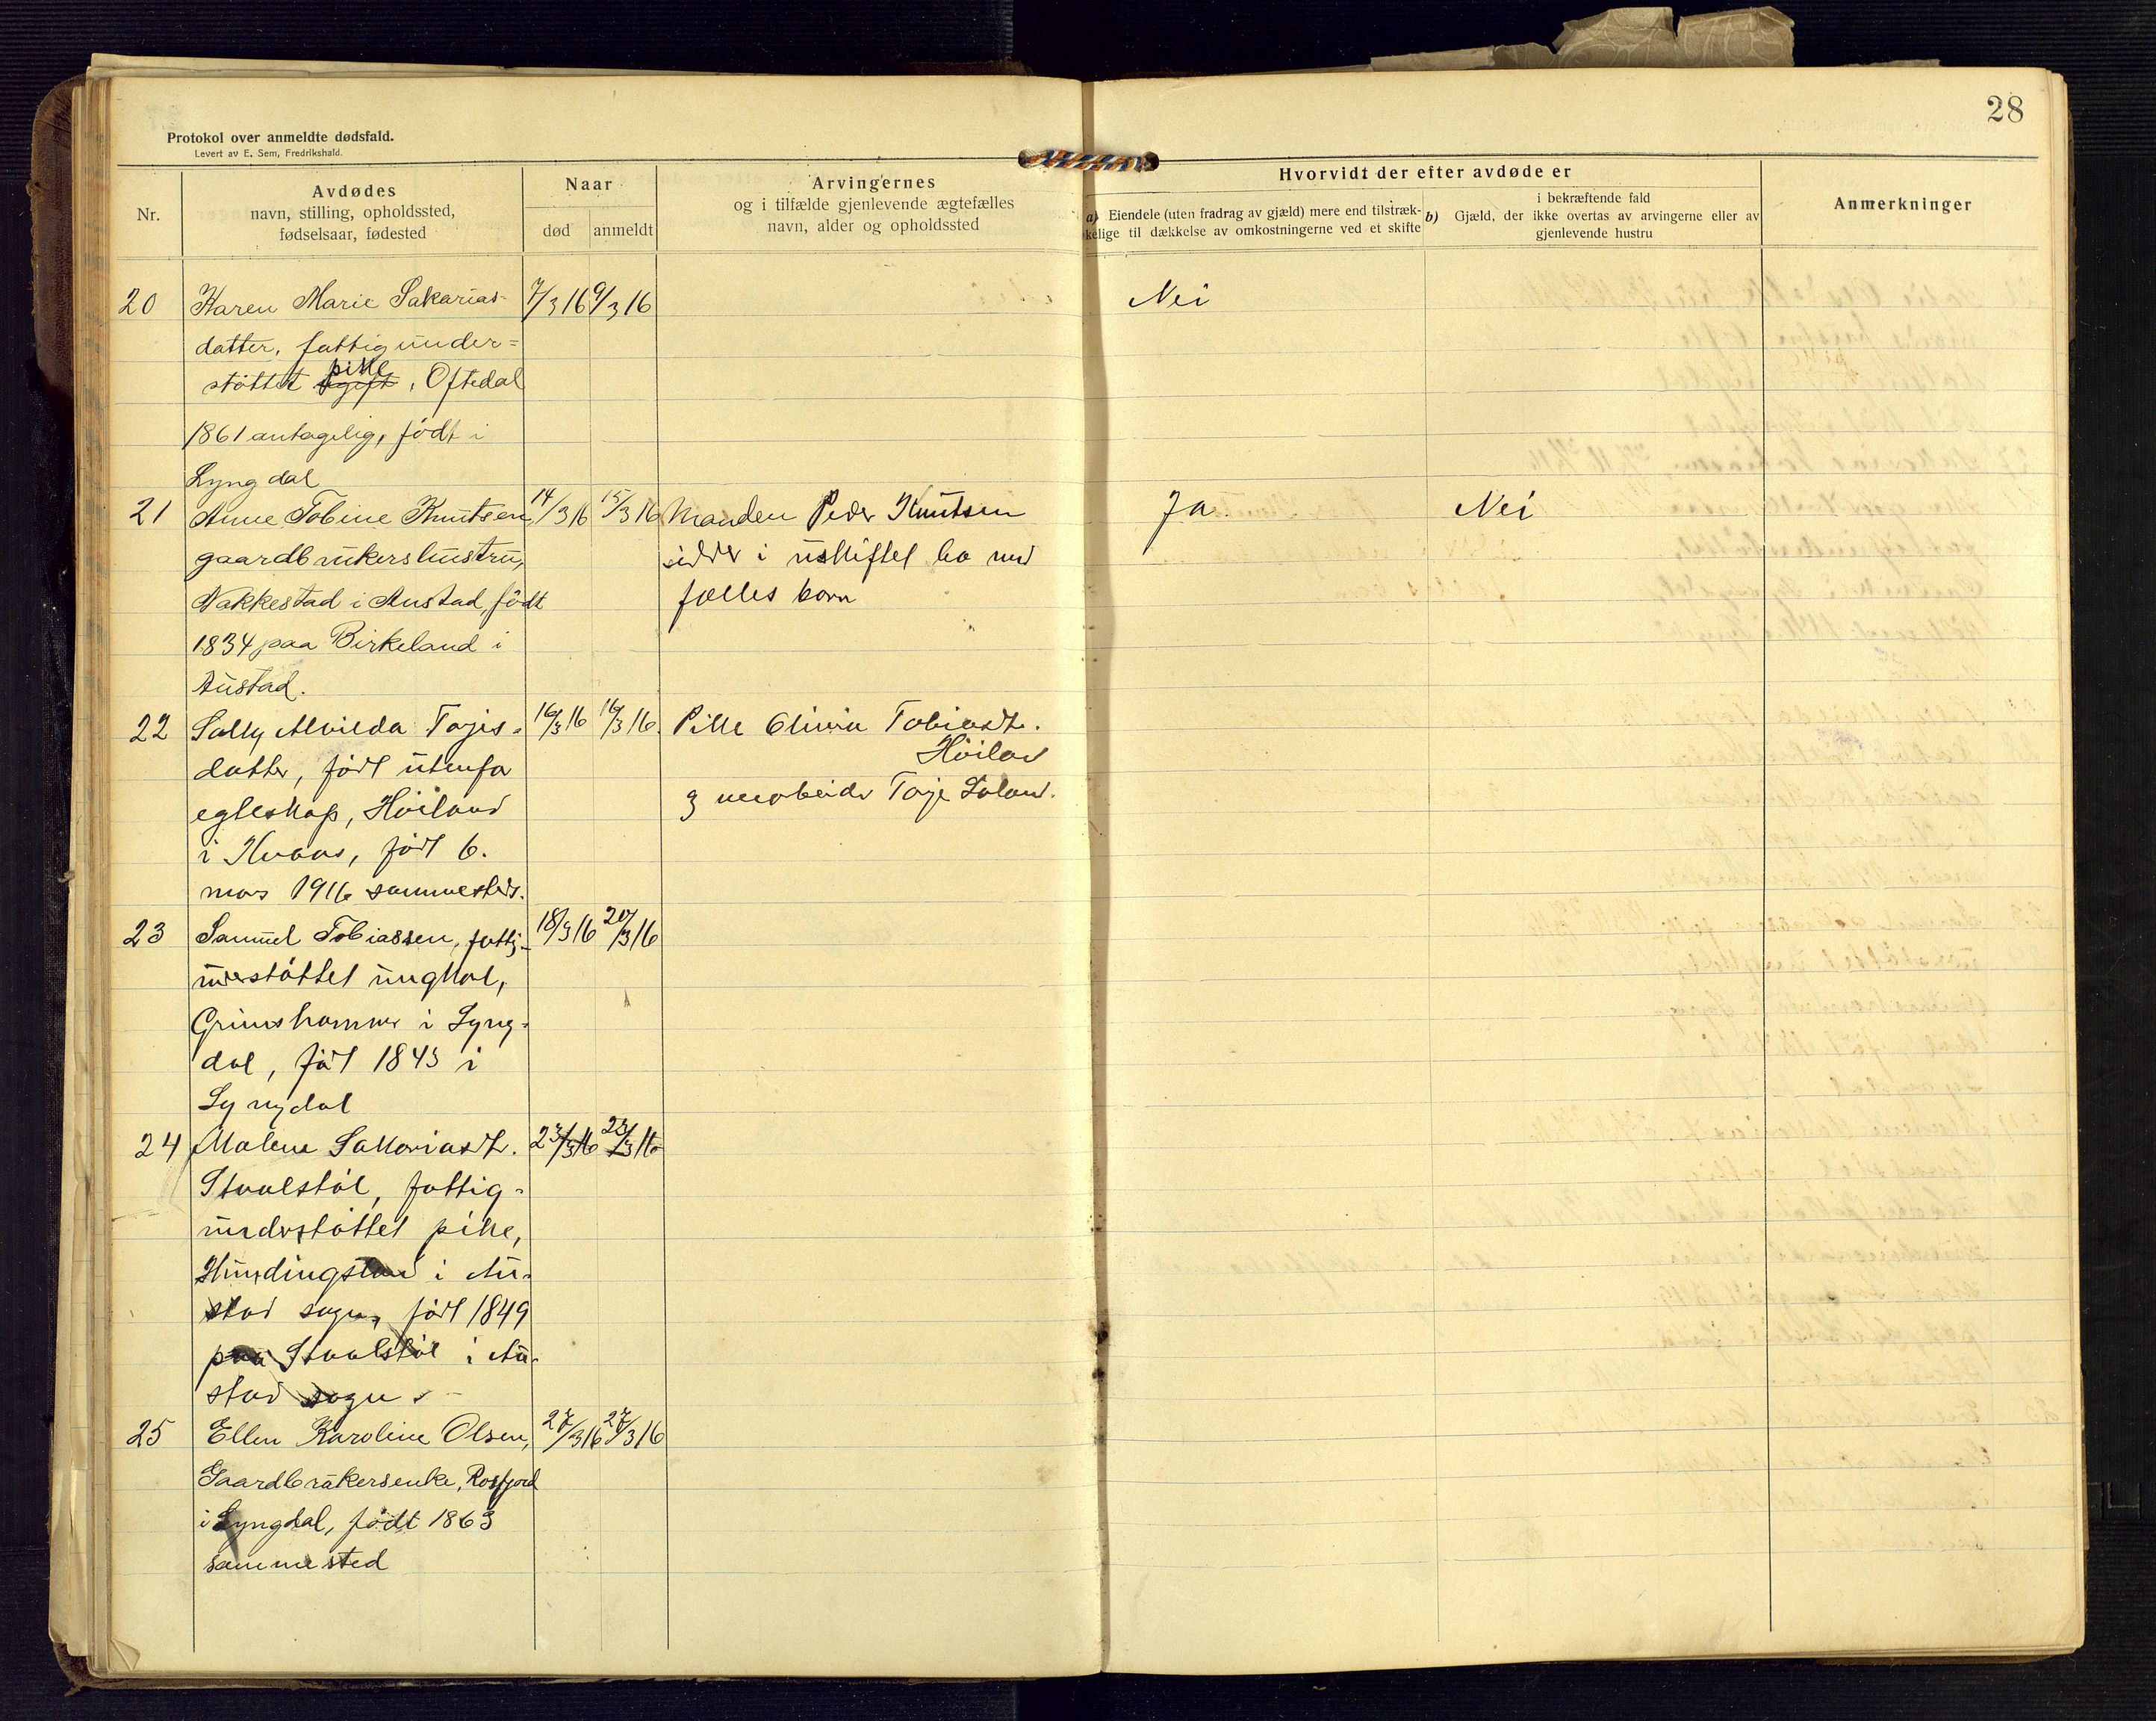 28
Protokol over anmeldte dødsfald.
Levert av E. Sem, Fredrikshald.
Nr.
Avdødes
navn, stilling, opholdssted,
fødselsaar, fødested
Naar
død
anmeldt
Arvingernes
og i tilfælde gjenlevende ægtefælles
navn, alder og opholdssted
Hvorvidt der efter avdøde er
a) Eiendele (uten fradrag av gjæld) mere end tilstræk-
kelige til dækkelse av omkostningerne ved et skifte
i bekræftende fald
b) Gjæld, der ikke overtas av arvingerne eller av
gjenlevende hustru
Anmerkninger
20 Karen Marie Sakarias- 7/3 16 9/3 16 Nei
datter, fattigunder=
støttet pike, Oftedal
1861 antagelig, født i
Lyngdal
21 Anne Tobine Knutsen 14/3 16 15/3 16 Manden Peder Knutsen Ja. Nei
gaardbrukershustru, sidder i uskiftet bo med
Nakkestad i Austad, født fælles børn
1834 paa Birkeland i
Austad.
22 Sally Alvilda Tojes- 16/3 16 16/3 16. Pike Olivia Tobiasdtr.
Høiland
datter, født utenfor
egteskap, Høiland og Toje
i Kvaas, født 6.
mars 1916 sammesteds.
23 Samuel Tobiassen, fattig- 18/3 16 20/3 16
understøttet ungkal,
Grimshammer i Lyng-
dal, født 1843 i
Lyngdal
24 Malene Sakariasdtr. 23/3 16 23/3 16
Staalstøl, fattig-
understøttet pike,
i Au-
stad sogn, født 1849
paa Staalstøl i Au-
stad sogn.
25 Ellen Karoline Olsen, 27/3 16 27/3 16
Gaardbrukersenke, Rosfjord
i Lyngdal, født 1863
sammested